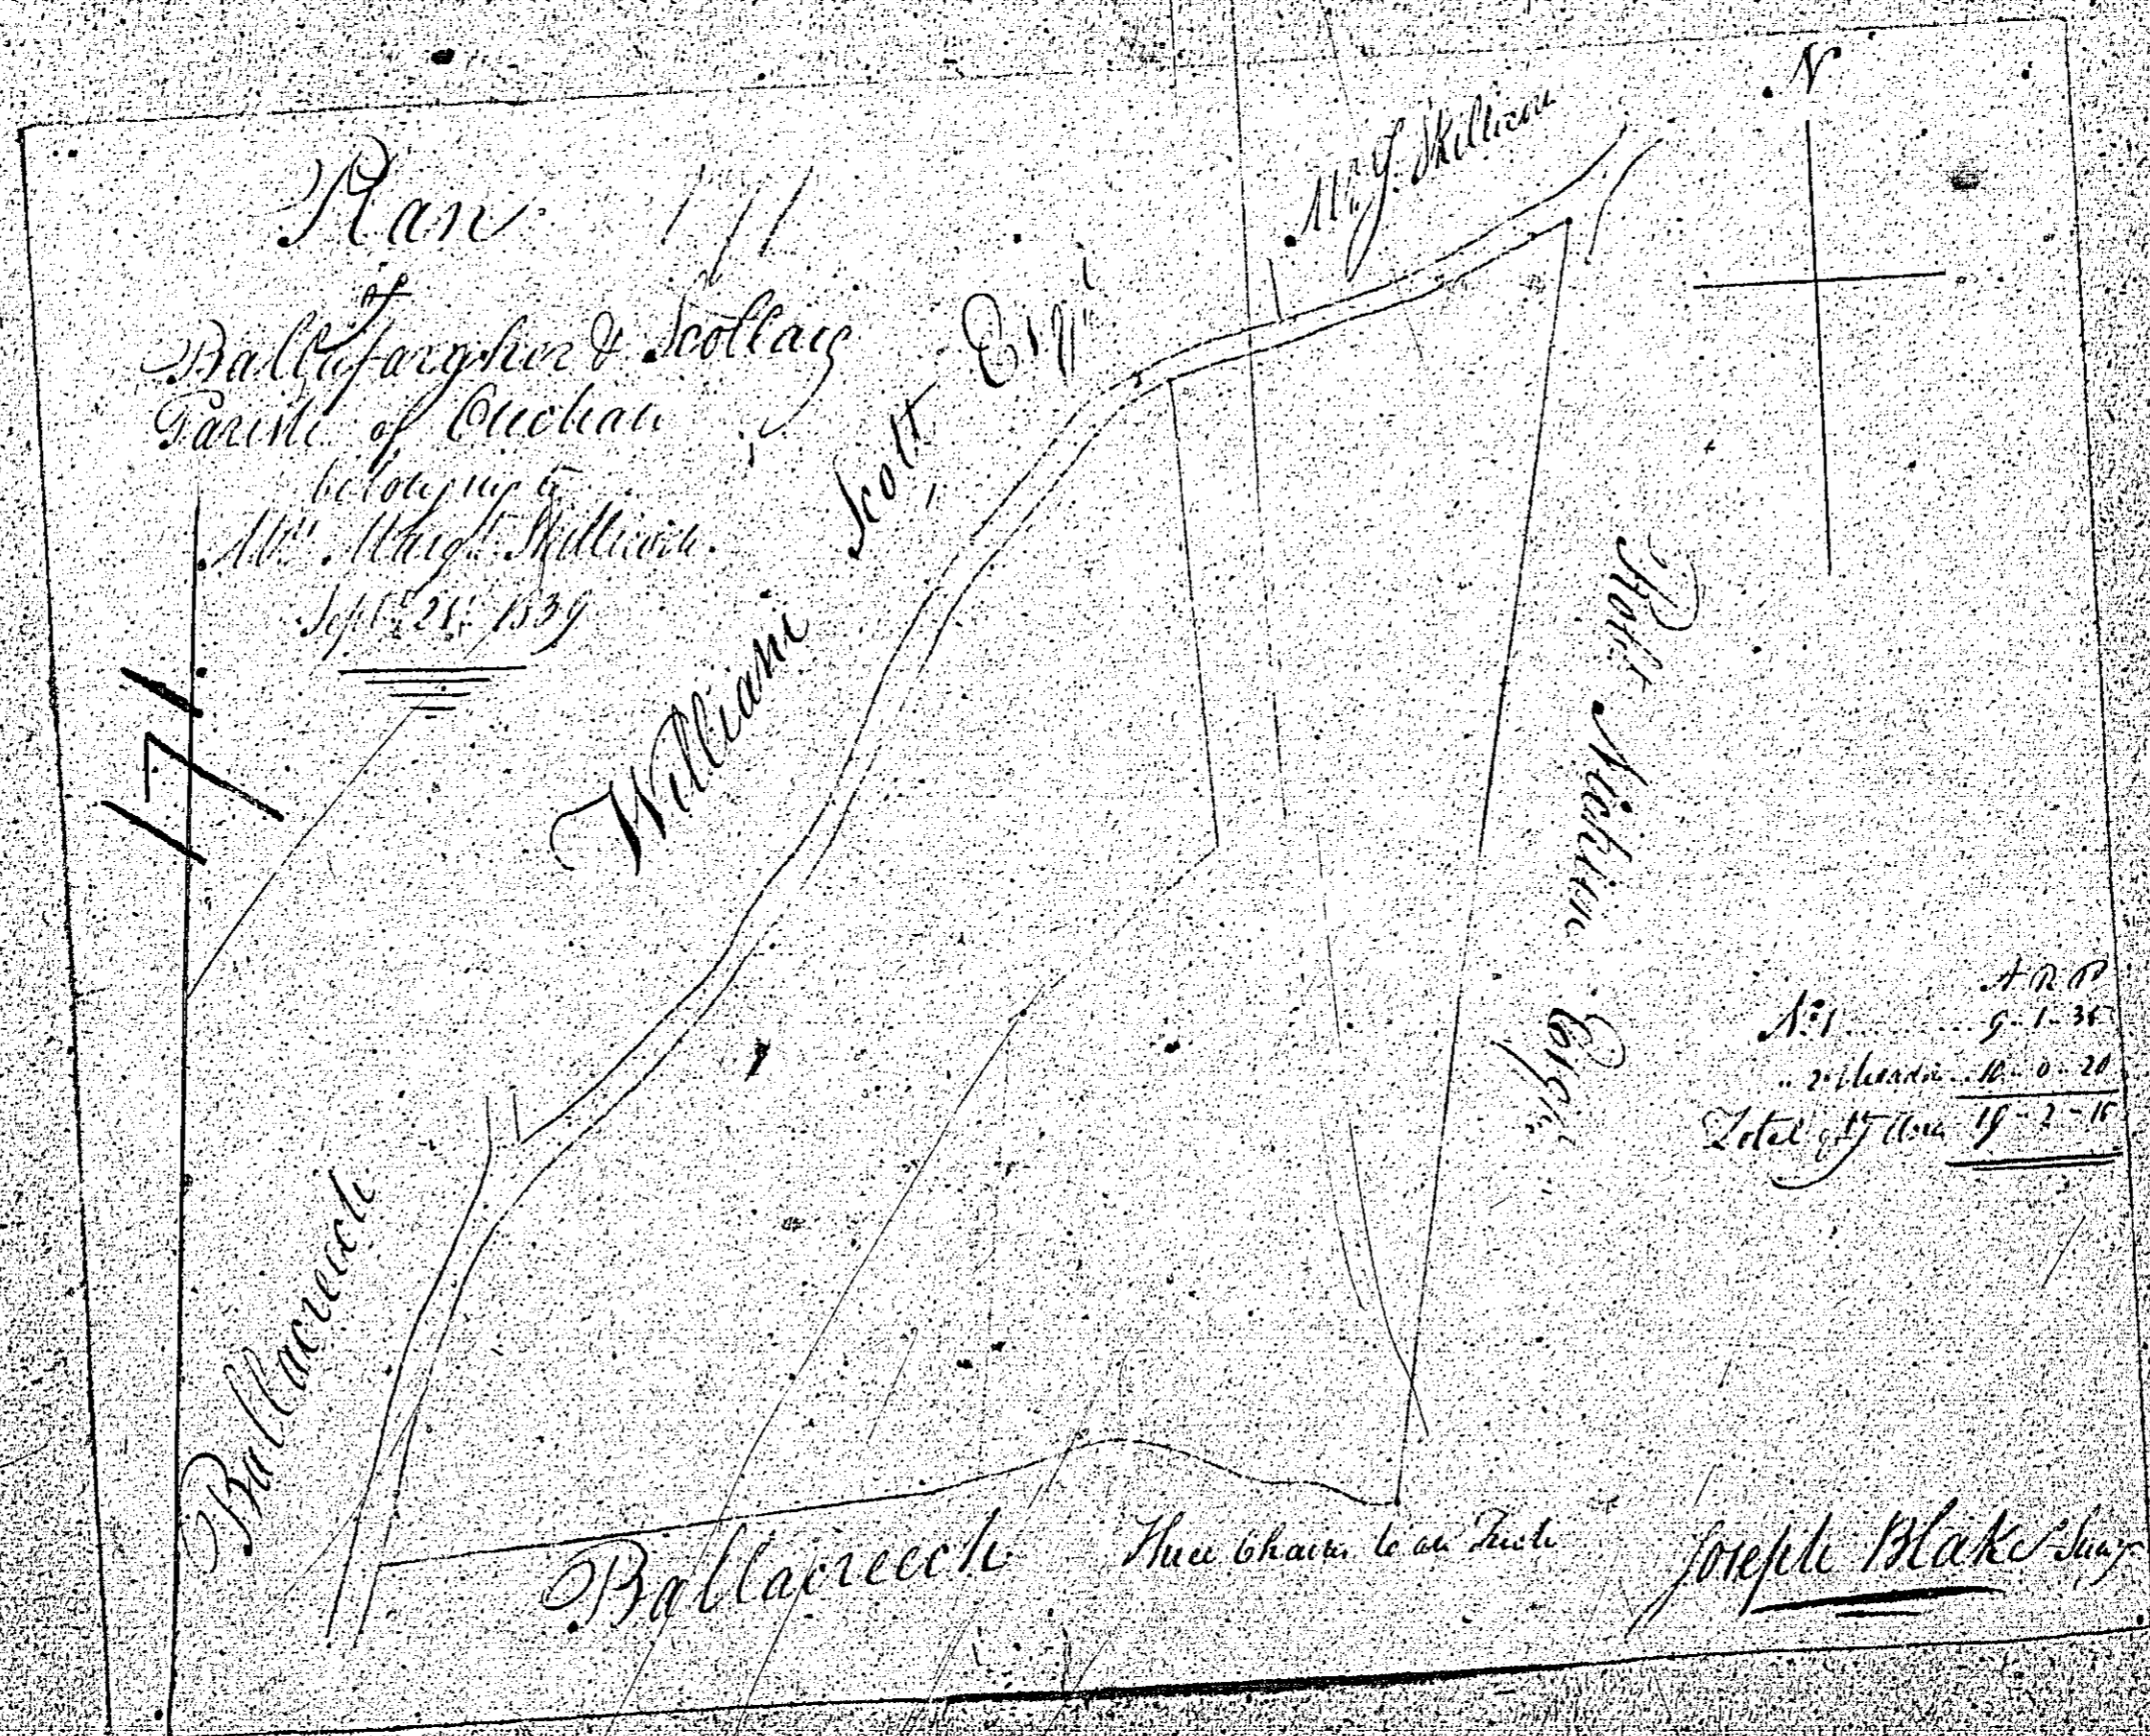 Plan
of
Ballafargher & Scollag
Parish of Onchan
belonging to
Mrs. Margt. Skillicorn.
Septr. 21st 1839
171
William Scott Esqr
Mr. J. Skillicorn
N
Robt
Esqr
A R P
No. 1 9 - 1 - 35
" 2 10 - 0 - 20
Total 19 - 2 - 15
1
Ballacreech
Ballacreech
Three Chains to an Inch
Joseph Blake Survr